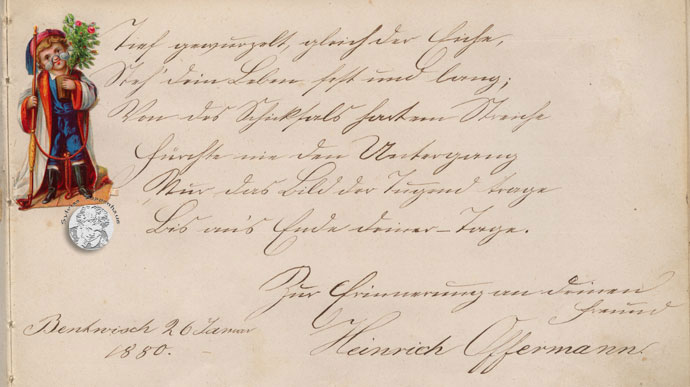 Tief gewurzelt, gleich der Eiche,
Steh' dein Leben fest und lang;
Von des Schicksals hartem Streiche
Fürchte nie den Untergang
Nur das Bild der Tugend trage
Bis an's Ende deiner Tage.
Zur Erinnerung an deinen
Freund
Heinrich Offermann.
Bentwisch 26 Januar
1880.